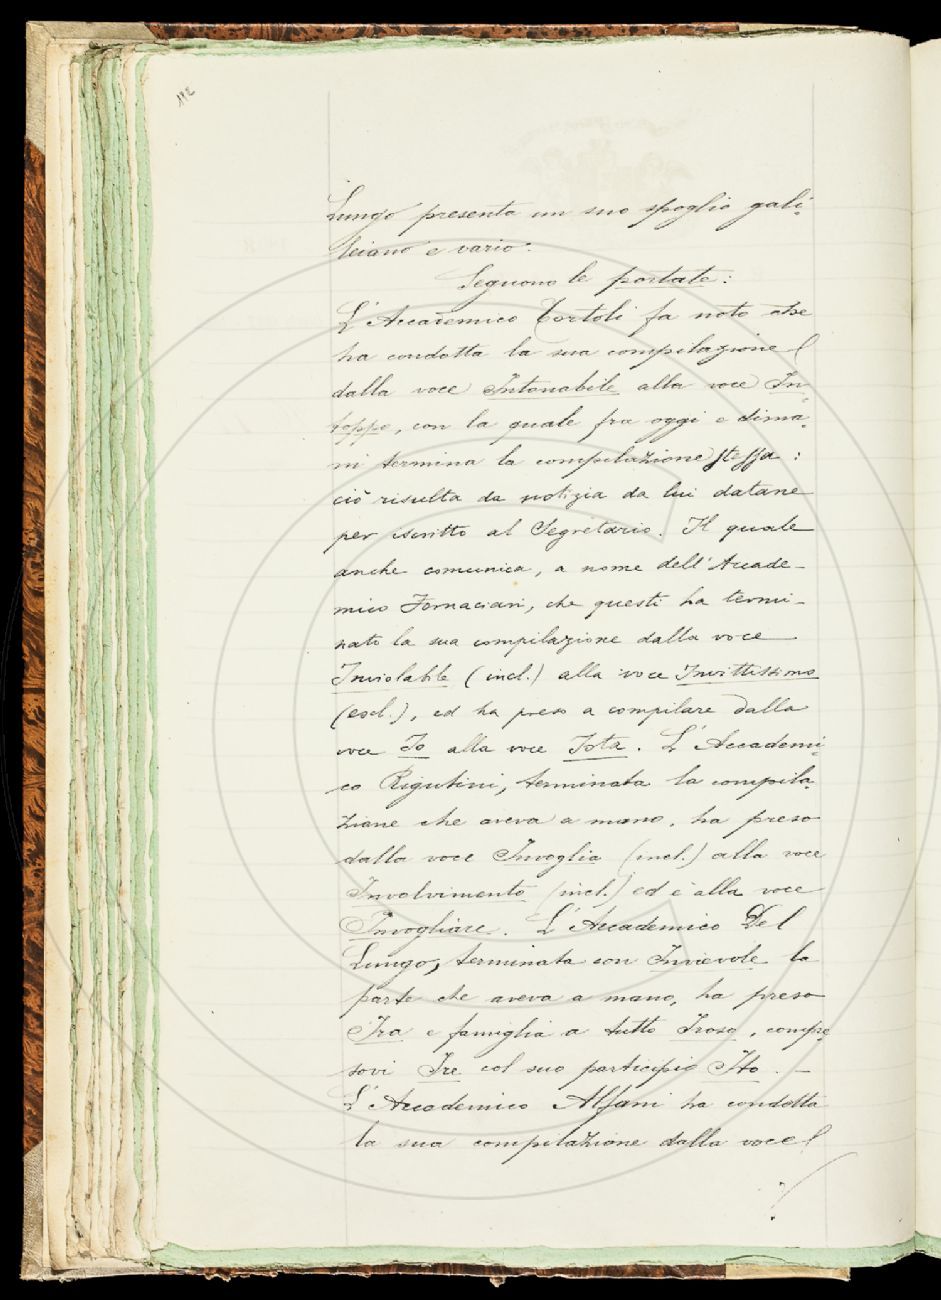 172
Lungo presenta un suo spoglio gali-
leiano e vario.
Seguono le portate:
L'Accademico Tortoli fa noto che
ha condotta la sua compilazione
dalla voce Intonabile alla voce In-
toppo, con la quale fra oggi e dima-
ni termina la compilazione stessa:
ciò risulta da notizia da lui datane
per iscritto al Segretario. Il quale
anche comunica, a nome dell'Accade-
mico Fornaciari, che questi ha termi-
nato la sua compilazione dalla voce
Inviolabile (incl.) alla voce Invittissimo
(escl.), ed ha preso a compilare dalla
voce Io alla voce Iota. L'Accademi-
co Rigutini, terminata la compila-
zione che aveva a mano, ha preso
dalla voce Invoglia (incl.) alla voce
Involvimento (incl.) ed è alla voce
Invogliare. L'Accademico Del
Lungo, terminata con Invievole la
parte che aveva a mano, ha preso
Ira e famiglia a tutto Iroso, compre-
sovi Ire col suo participio Ito. -
L'Accademico Alfani ha condotta
la sua compilazione dalla voce